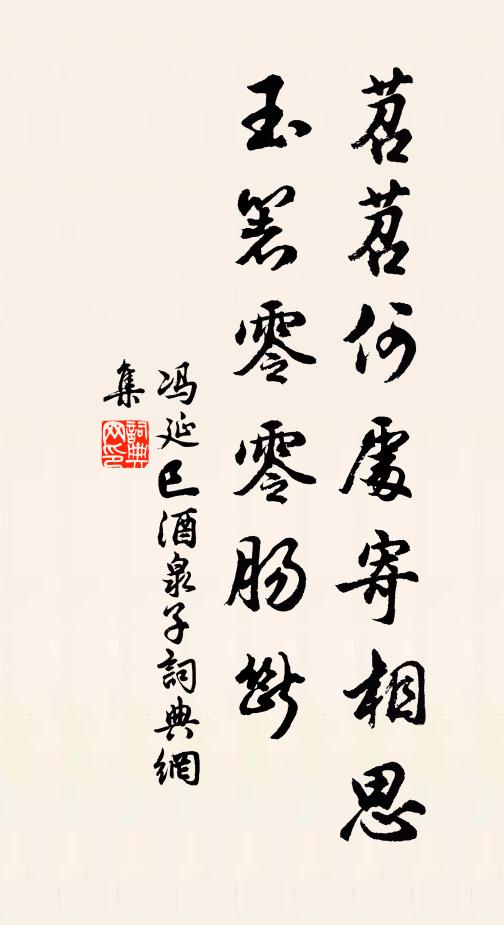 苕苕何處寄相思
玉箸零零肠斷
冯延巳酒泉子詞典網
集
詞典
网印